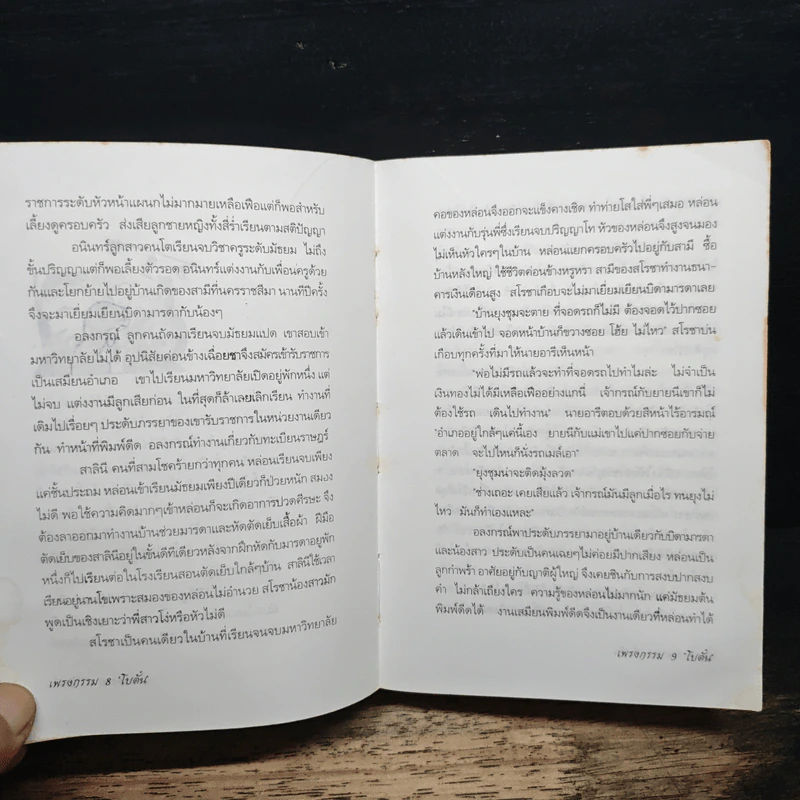 ราชการระดับหัวหน้าแผนกไม่มากมายเหลือเฟือแต่ก็พอสำหรับ
เลี้ยงดูครอบครัว ส่งเสียลูกชายหญิงทั้งสี่ร่ำเรียนตามสติปัญญา
อนินทร์ลูกสาวคนโตเรียนจบวิชาครูระดับมัธยม ไม่ถึง
ขั้นปริญญาแต่ก็พอเลี้ยงตัวรอด อนินทร์แต่งงานกับเพื่อนครูด้วย
กันและโยกย้ายไปอยู่บ้านเกิดของสามีที่นครราชสีมา นานทีปีครั้ง
จึงจะมาเยี่ยมเยียนบิดามารดากับน้องๆ
อลงกรณ์ ลูกคนถัดมาเรียนจบมัธยมแปด เขาสอบเข้า
มหาวิทยาลัยไม่ได้ อุปนิสัยค่อนข้างเฉื่อยชาจึงสมัครเข้ารับราชการ
เป็นเสมียนอำเภอ เขาไปเรียนมหาวิทยาลัยเปิดอยู่พักหนึ่ง แต่
ไม่จบ แต่งงานมีลูกเสียก่อน ในที่สุดก็ล้าเลยเลิกเรียน ทำงานที่
เดิมไปเรื่อยๆ ประดับภรรยาของเขารับราชการในหน่วยงานเดียว
กัน ทำหน้าที่พิมพ์ดีด อลงกรณ์ทำงานเกี่ยวกับทะเบียนราษฎร์
สาลินี คนที่สามโชคร้ายกว่าทุกคน หล่อนเรียนจบเพียง
แค่ชั้นประถม หล่อนเข้าเรียนมัธยมเพียงปีเดียวก็ป่วยหนัก สมอง
ไม่ดี พอใช้ความคิดมากๆเข้าหล่อนก็จะเกิดอาการปวดศีรษะ จึง
ต้องลาออกมาทำงานบ้านช่วยมารดาและหัดตัดเย็บเสื้อผ้า ฝีมือ
ตัดเย็บของสาลินีอยู่ในขั้นดีทีเดียวหลังจากฝึกหัดกับมารดาอยู่พัก
หนึ่งก็ไปเรียนต่อในโรงเรียนสอนตัดเย็บใกล้ๆบ้าน สาลินีใช้เวลา
เรียนอยู่นานโขเพราะสมองของหล่อนไม่อำนวย สโรชาน้องสาวมัก
พูดเป็นเชิงเยาะว่าพี่สาวโง่หรือหัวไม่ดี
สโรชาเป็นคนเดียวในบ้านที่เรียนจนจบมหาวิทยาลัย
เพรงกรรม 8 โบตั๋น
คอของหล่อนจึงออกจะแข็งคางเชิด ทำท่ายโสใส่พี่ๆเสมอ หล่อน
แต่งงานกับรุ่นพี่ซึ่งเรียนจบปริญญาโท หัวของหล่อนจึงสูงจนมอง
ไม่เห็นหัวใครๆในบ้าน หล่อนแยกครอบครัวไปอยู่กับสามี ซื้อ
บ้านหลังใหญ่ ใช้ชีวิตค่อนข้างหรูหรา สามีของสโรชาทำงานธนา-
คารเงินเดือนสูง สโรชาเกือบจะไม่มาเยี่ยมเยียนบิดามารดาเลย
"บ้านยุงชุมจะตาย ที่จอดรถก็ไม่มี ต้องจอดไว้ปากซอย
แล้วเดินเข้าไป จอดหน้าบ้านก็ขวางซอย โฮ้ย ไม่ไหว" สโรชาบ่น
เกือบทุกครั้งที่มาให้นายอารีเห็นหน้า
"พ่อไม่มีรถแล้วจะทำที่จอดรถไปทำไมล่ะ ไม่จำเป็น
เงินทองไม่ได้มีเหลือเฟืออย่างแกนี่ เจ้ากรณ์กับยายนีเขาก็ไม่
ต้องใช้รถ เดินไปทำงาน" นายอารีตอบด้วยสีหน้าไร้อารมณ์
"อำเภออยู่ใกล้ๆแค่นี้เอง ยายนีกับแม่เขาไปแค่ปากซอยกับจ่าย
ตลาด จะไปไหนก็นั่งรถเมล์เอา"
"ยุงชุมน่าจะติดมุ้งลวด"
"ช่างเถอะ เคยเสียแล้ว เจ้ากรณ์มันมีลูกเมื่อไร ทนยุงไม่
ไหว มันก็ทำเองแหละ"
อลงกรณ์พาประดับภรรยามาอยู่บ้านเดียวกับบิดามารดา
และน้องสาว ประดับเป็นคนเฉยๆไม่ค่อยมีปากเสียง หล่อนเป็น
ลูกกำพร้า อาศัยอยู่กับญาติผู้ใหญ่ จึงเคยชินกับการสงบปากสงบ
คำ ไม่กล้าเถียงใคร ความรู้ของหล่อนไม่มากนัก แค่มัธยมต้น
พิมพ์ดีดได้ งานเสมียนพิมพ์ดีดจึงเป็นงานเดียวที่หล่อนทำได้
เพรงกรรม 9 โบตั๋น